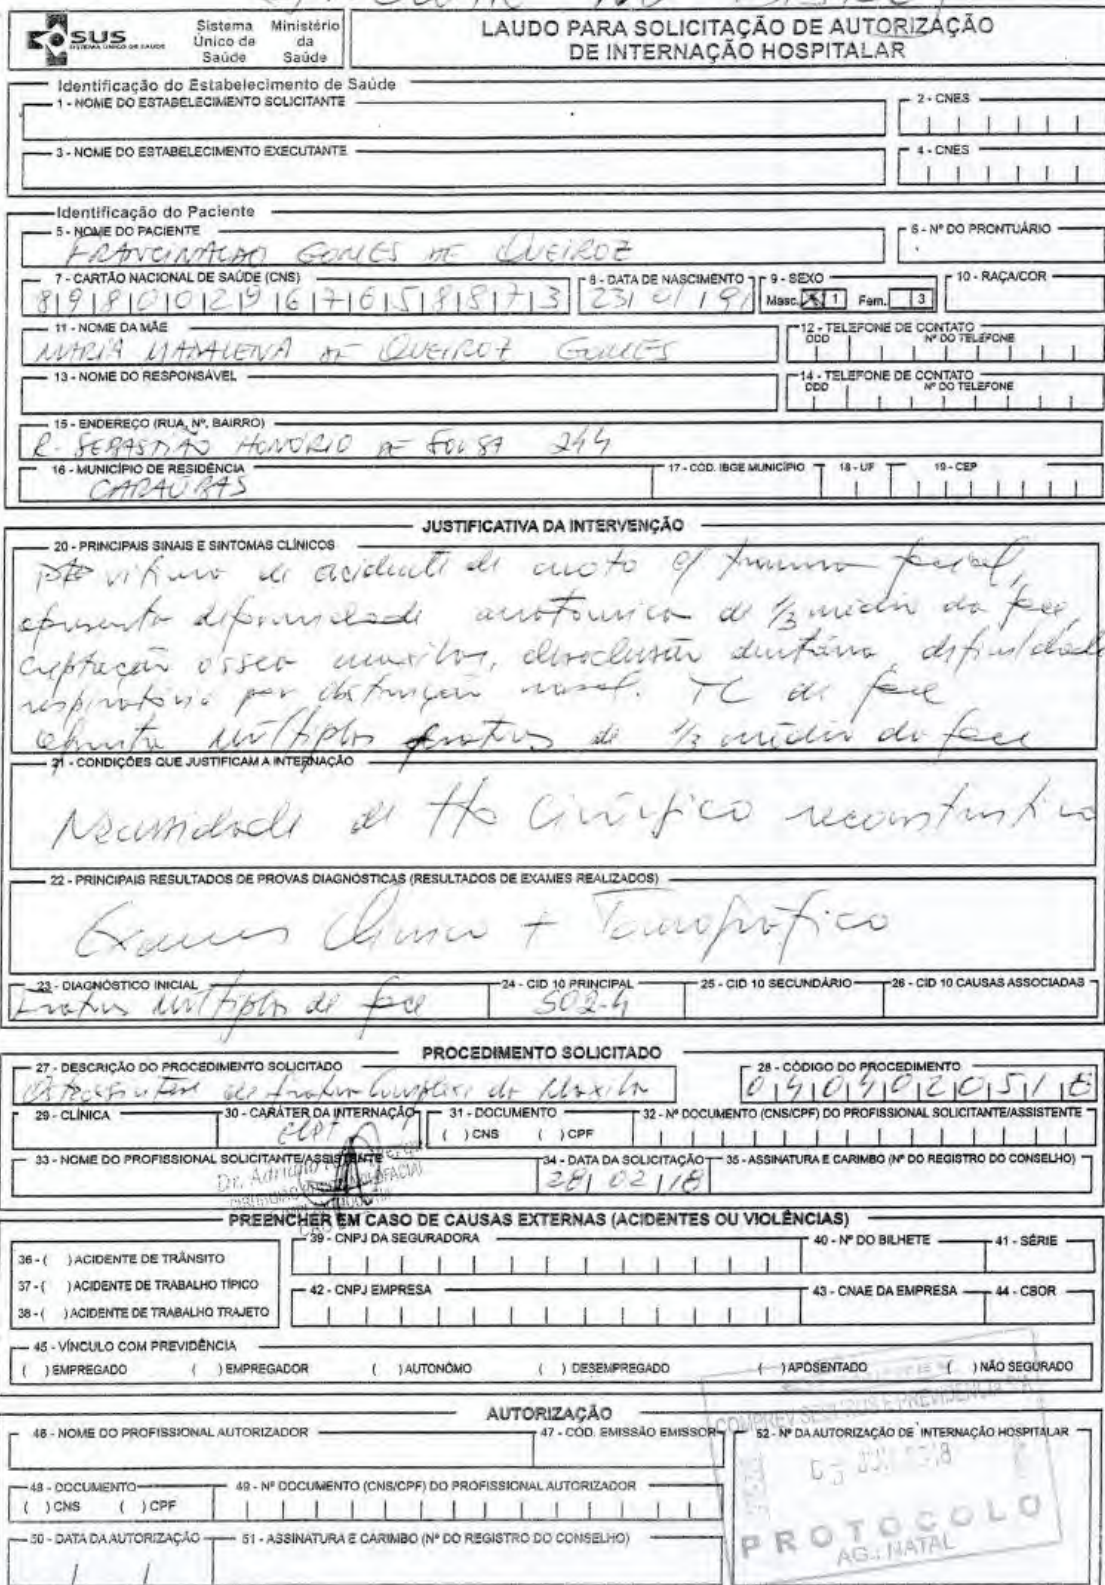 SUS
SISTEMA ÚNICO DE SAÚDE
Sistema Único de Saúde
Ministério da Saúde
LAUDO PARA SOLICITAÇÃO DE AUTORIZAÇÃO
DE INTERNAÇÃO HOSPITALAR
Identificação do Estabelecimento de Saúde
1 - NOME DO ESTABELECIMENTO SOLICITANTE
2 - CNES
3 - NOME DO ESTABELECIMENTO EXECUTANTE
4 - CNES
Identificação do Paciente
5 - NOME DO PACIENTE
6 - Nº DO PRONTUÁRIO
GOMES DE QUEIROZ
7 - CARTÃO NACIONAL DE SAÚDE (CNS)
8 - DATA DE NASCIMENTO
9 - SEXO
10 - RAÇA/COR
8980029167658873
23/01/91
Masc. X 1 Fem. 3
11 - NOME DA MÃE
12 - TELEFONE DE CONTATO
DDD Nº DO TELEFONE
MARIA MADALENA DE QUEIROZ GOMES
13 - NOME DO RESPONSÁVEL
14 - TELEFONE DE CONTATO
DDD Nº DO TELEFONE
15 - ENDEREÇO (RUA, Nº, BAIRRO)
R. SEBASTIÃO HONÓRIO DE SOUSA 244
16 - MUNICÍPIO DE RESIDÊNCIA
17 - CÓD. IBGE MUNICÍPIO
18 - UF
19 - CEP
CARAÚBAS
JUSTIFICATIVA DA INTERVENÇÃO
20 - PRINCIPAIS SINAIS E SINTOMAS CLÍNICOS
vítima de acidente de moto c/ trauma facial,
apresenta deformidade anatômica de 1/3 médio da face,
crepitação óssea maxilar, desoclusão dentária, dificuldade
respiratória por obstrução nasal. TC de face
apresenta múltiplas fraturas de 1/3 médio da face
21 - CONDIÇÕES QUE JUSTIFICAM A INTERNAÇÃO
Necessidade de tto cirúrgico reconstrutivo
22 - PRINCIPAIS RESULTADOS DE PROVAS DIAGNÓSTICAS (RESULTADOS DE EXAMES REALIZADOS)
Exames Clínico + Tomográfico
23 - DIAGNÓSTICO INICIAL
24 - CID 10 PRINCIPAL
25 - CID 10 SECUNDÁRIO
26 - CID 10 CAUSAS ASSOCIADAS
Fraturas múltiplas de face
S02-4
PROCEDIMENTO SOLICITADO
27 - DESCRIÇÃO DO PROCEDIMENTO SOLICITADO
28 - CÓDIGO DO PROCEDIMENTO
Osteossíntese de fratura complexa da Maxila
29 - CLÍNICA
30 - CARÁTER DA INTERNAÇÃO
31 - DOCUMENTO
32 - Nº DOCUMENTO (CNS/CPF) DO PROFISSIONAL SOLICITANTE/ASSISTENTE
( ) CNS ( ) CPF
33 - NOME DO PROFISSIONAL SOLICITANTE/ASSISTENTE
34 - DATA DA SOLICITAÇÃO
35 - ASSINATURA E CARIMBO (Nº DO REGISTRO DO CONSELHO)
Dr. Adriano
28/02/18
PREENCHER EM CASO DE CAUSAS EXTERNAS (ACIDENTES OU VIOLÊNCIAS)
36 - ( ) ACIDENTE DE TRÂNSITO
37 - ( ) ACIDENTE DE TRABALHO TÍPICO
38 - ( ) ACIDENTE DE TRABALHO TRAJETO
39 - CNPJ DA SEGURADORA
40 - Nº DO BILHETE
41 - SÉRIE
42 - CNPJ EMPRESA
43 - CNAE DA EMPRESA
44 - CBOR
45 - VÍNCULO COM PREVIDÊNCIA
( ) EMPREGADO ( ) EMPREGADOR ( ) AUTONÔMO ( ) DESEMPREGADO ( ) APOSENTADO ( ) NÃO SEGURADO
AUTORIZAÇÃO
46 - NOME DO PROFISSIONAL AUTORIZADOR
47 - CÓD. EMISSÃO EMISSOR
52 - Nº DA AUTORIZAÇÃO DE INTERNAÇÃO HOSPITALAR
48 - DOCUMENTO
49 - Nº DOCUMENTO (CNS/CPF) DO PROFISSIONAL AUTORIZADOR
( ) CNS ( ) CPF
50 - DATA DA AUTORIZAÇÃO
51 - ASSINATURA E CARIMBO (Nº DO REGISTRO DO CONSELHO)
COMPREV SEGUROS E PREVIDÊNCIA
PROTOCOLO
AG.: NATAL